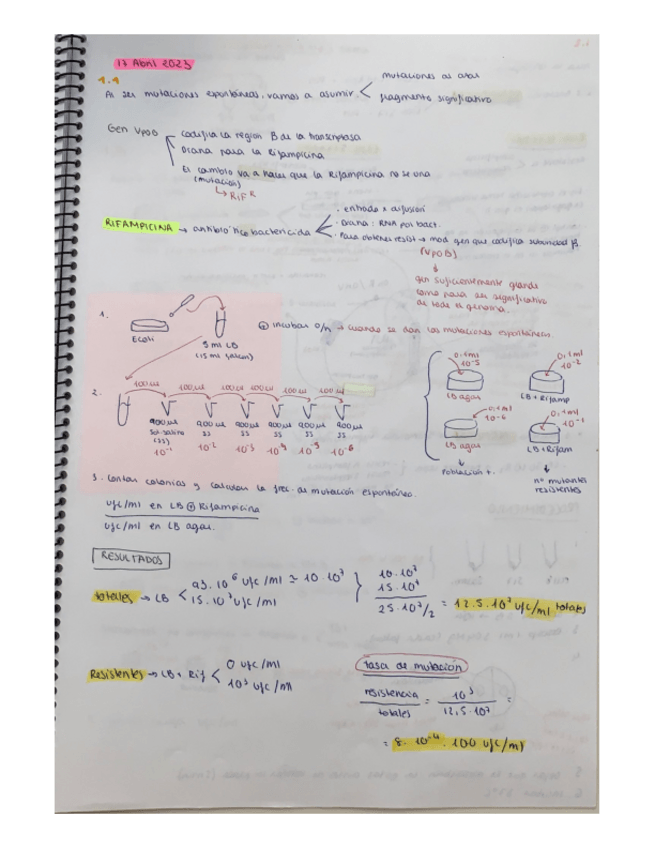 17 Abril 2023
1.1
Al ser mutaciones espontáneas, vamos a asumir
mutaciones al azar
fragmento significativo
Gen VpoB
codifica la region B de la transcriptasa
Diana para la Rifampicina
El cambio va a hacer que la Rifampicina no se una
(mutación)
RIF R
RIFAMPICINA → antibiótico bactericida
· entrada x difusión
· Diana: RNA pol bact.
· Para obtener resist → mod gen que codifica subunidad β
(VpoB)
gen suficientemente grande
como para ser significativo
de todo el genoma.
1.
Ecoli
5 ml LB
(15 ml falcon)
② incubar o/n → cuando se dan las mutaciones espontáneas.
2.
100 ul 100 ul 100 ul 100 ul 100 ul 100 ul
900 ul 900 ul 900 ul 900 ul 900 ul 900 ul
Sol. salino SS SS SS SS SS
(SS)
10⁻¹ 10⁻² 10⁻³ 10⁻⁴ 10⁻⁵ 10⁻⁶
0,1ml 10⁻⁵
LB agar
0,1ml 10⁻²
LB + Rifamp
0,1ml 10⁻⁶
LB agar
0,1ml 10⁻¹
LB + Rifam
Población t.
nº mutantes
resistentes
3. Contar colonias y calcular la frec. de mutación espontánea.
ufc/ml en LB ⊕ Rifampicina
ufc/ml en LB agar.
RESULTADOS
totales → LB
93.10⁶ ufc/ml ≃ 10.10⁷
15.10⁷ ufc/ml
10.10⁷
15.10⁷
25.10⁷/2 = 12.5.10⁷ ufc/ml totales
Resistentes → LB + Rif
0 ufc/ml
10³ ufc/ml
tasa de mutación
resistencia / totales = 10³ / 12,5.10⁷ =
= 8.10⁻⁴.100 ufc/ml